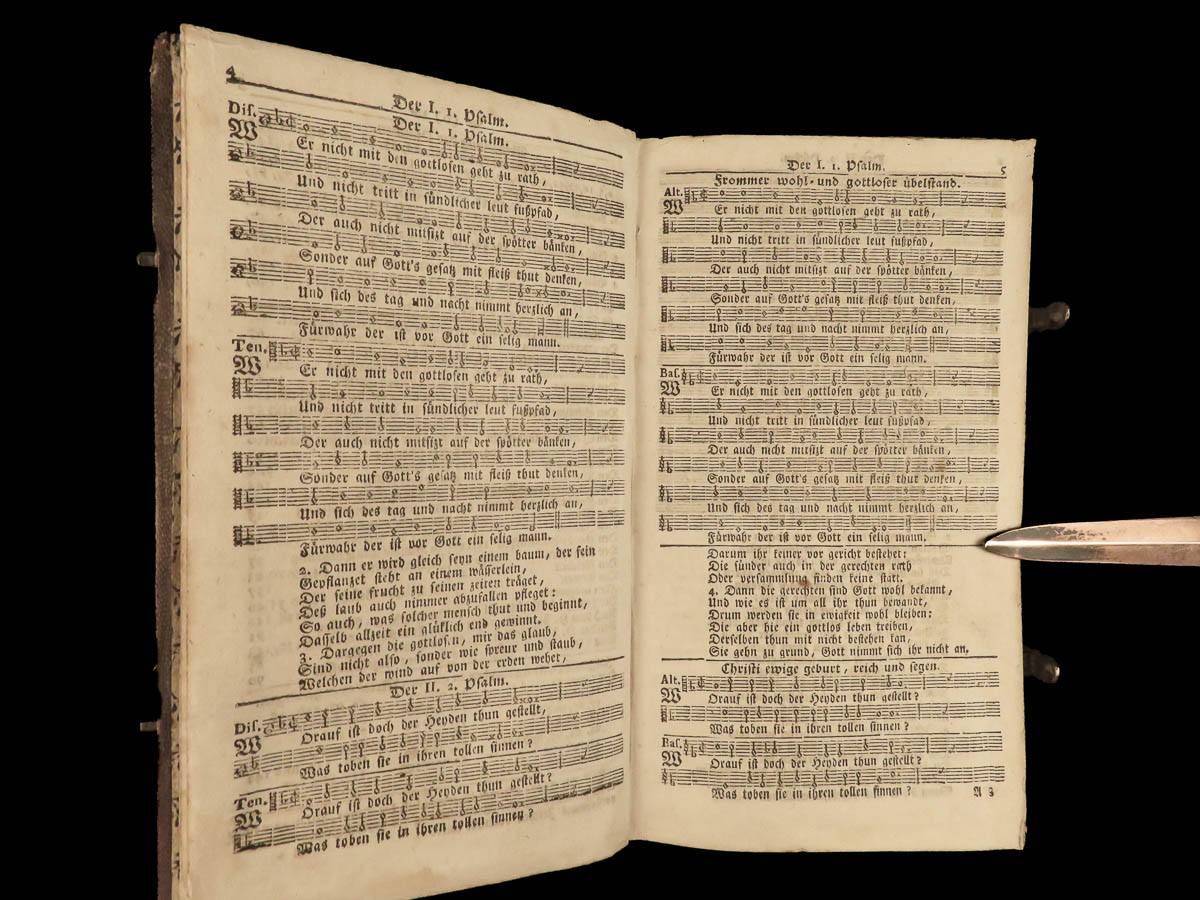 4
Der I. 1. Psalm.
Der I. 1. Psalm.
Dis.
WEr nicht mit den gottlosen geht zu rath,
Und nicht tritt in sündlicher leut fußpfad,
Der auch nicht mitsizt auf der spötter bänken,
Sonder auf Gott's gesatz mit fleiß thut denken,
Und sich des tag und nacht nimmt herzlich an,
Fürwahr der ist vor Gott ein selig mann.
Ten.
WEr nicht mit den gottlosen geht zu rath,
Und nicht tritt in sündlicher leut fußpfad,
Der auch nicht mitsizt auf der spötter bänken,
Sonder auf Gott's gesatz mit fleiß thut denken,
Und sich des tag und nacht nimmt herzlich an,
Fürwahr der ist vor Gott ein selig mann.
2. Dann er wird gleich seyn einem baum, der fein
Gepflanzet steht an einem wässerlein,
Der seine frucht zu seinen zeiten träget,
Deß laub auch nimmer abzufallen pfleget:
So auch, was solcher mensch thut und beginnt,
Dasselb allzeit ein glüklich end gewinnt.
3. Dargegen die gottlosen, mir das glaub,
Sind nicht also, sonder wie spreur und staub,
Welchen der wind auf von der erden wehet,
Der II. 2. Psalm.
Dis.
WOrauf ist doch der Heyden thun gestellt,
Was toben sie in ihren tollen sinnen?
Ten.
WOrauf ist doch der Heyden thun gestellt?
Was toben sie in ihren tollen sinnen?
Der I. 1. Psalm.
5
Frommer wohl- und gottloser übelstand.
Alt.
WEr nicht mit den gottlosen geht zu rath,
Und nicht tritt in sündlicher leut fußpfad,
Der auch nicht mitsizt auf der spötter bänken,
Sonder auf Gott's gesatz mit fleiß thut denken,
Und sich des tag und nacht nimmt herzlich an,
Fürwahr der ist vor Gott ein selig mann.
Bas.
WEr nicht mit den gottlosen geht zu rath,
Und nicht tritt in sündlicher leut fußpfad,
Der auch nicht mitsizt auf der spötter bänken,
Sonder auf Gott's gesatz mit fleiß thut denken,
Und sich des tag und nacht nimmt herzlich an,
Fürwahr der ist vor Gott ein selig mann.
Darum ihr keiner vor gericht bestehet:
Die sünder auch in der gerechten rath
Oder versammlung finden keine statt.
4. Dann die gerechten sind Gott wohl bekannt,
Und wie es ist um all ihr thun bewandt,
Drum werden sie in ewigkeit wohl bleiben:
Die aber hie ein gottlos leben treiben,
Derselben thun mit nicht bestehen kan,
Sie gehn zu grund, Gott nimmt sich ihr nicht an.
Christi ewige geburt, reich und segen.
Alt.
WOrauf ist doch der Heyden thun gestellt?
Was toben sie in ihren tollen sinnen?
Bas.
WOrauf ist doch der Heyden thun gestellt?
Was toben sie in ihren tollen sinnen?
A 3